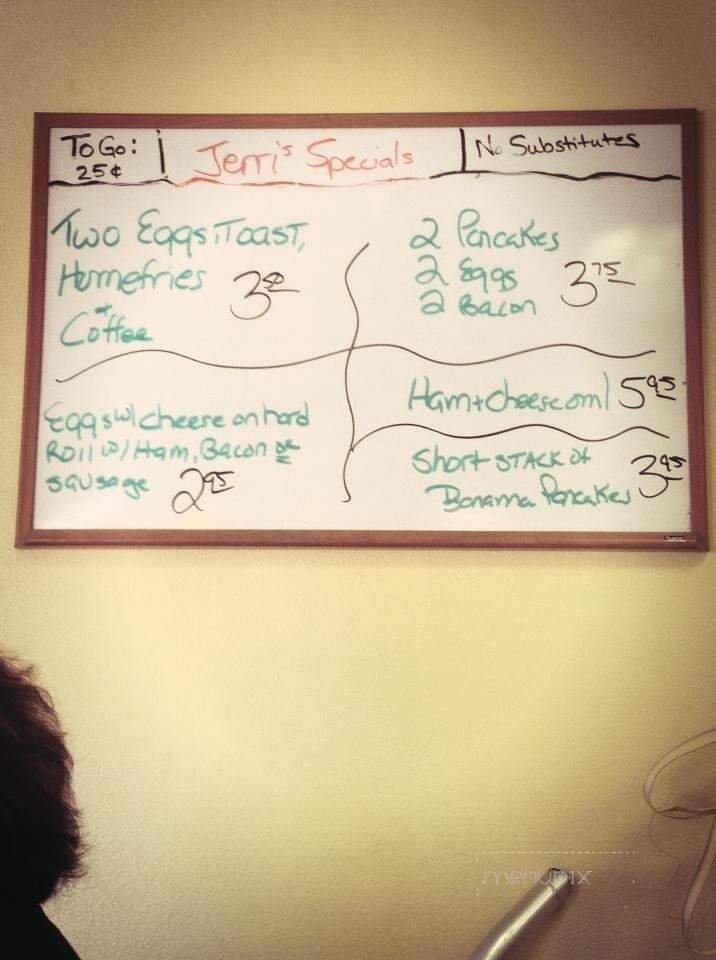 To Go:
25¢
Jerri's Specials
No Substitutes
Two Eggs, Toast,
Homefries
+
Coffee
3 50
2 Pancakes
2 Eggs
2 Bacon
3 75
Eggs w/ cheese on hard
Roll w/ Ham, Bacon or
sausage
2 95
Ham + cheese oml 5 95
Short STACK of
Banana Pancakes
3 95
menupix